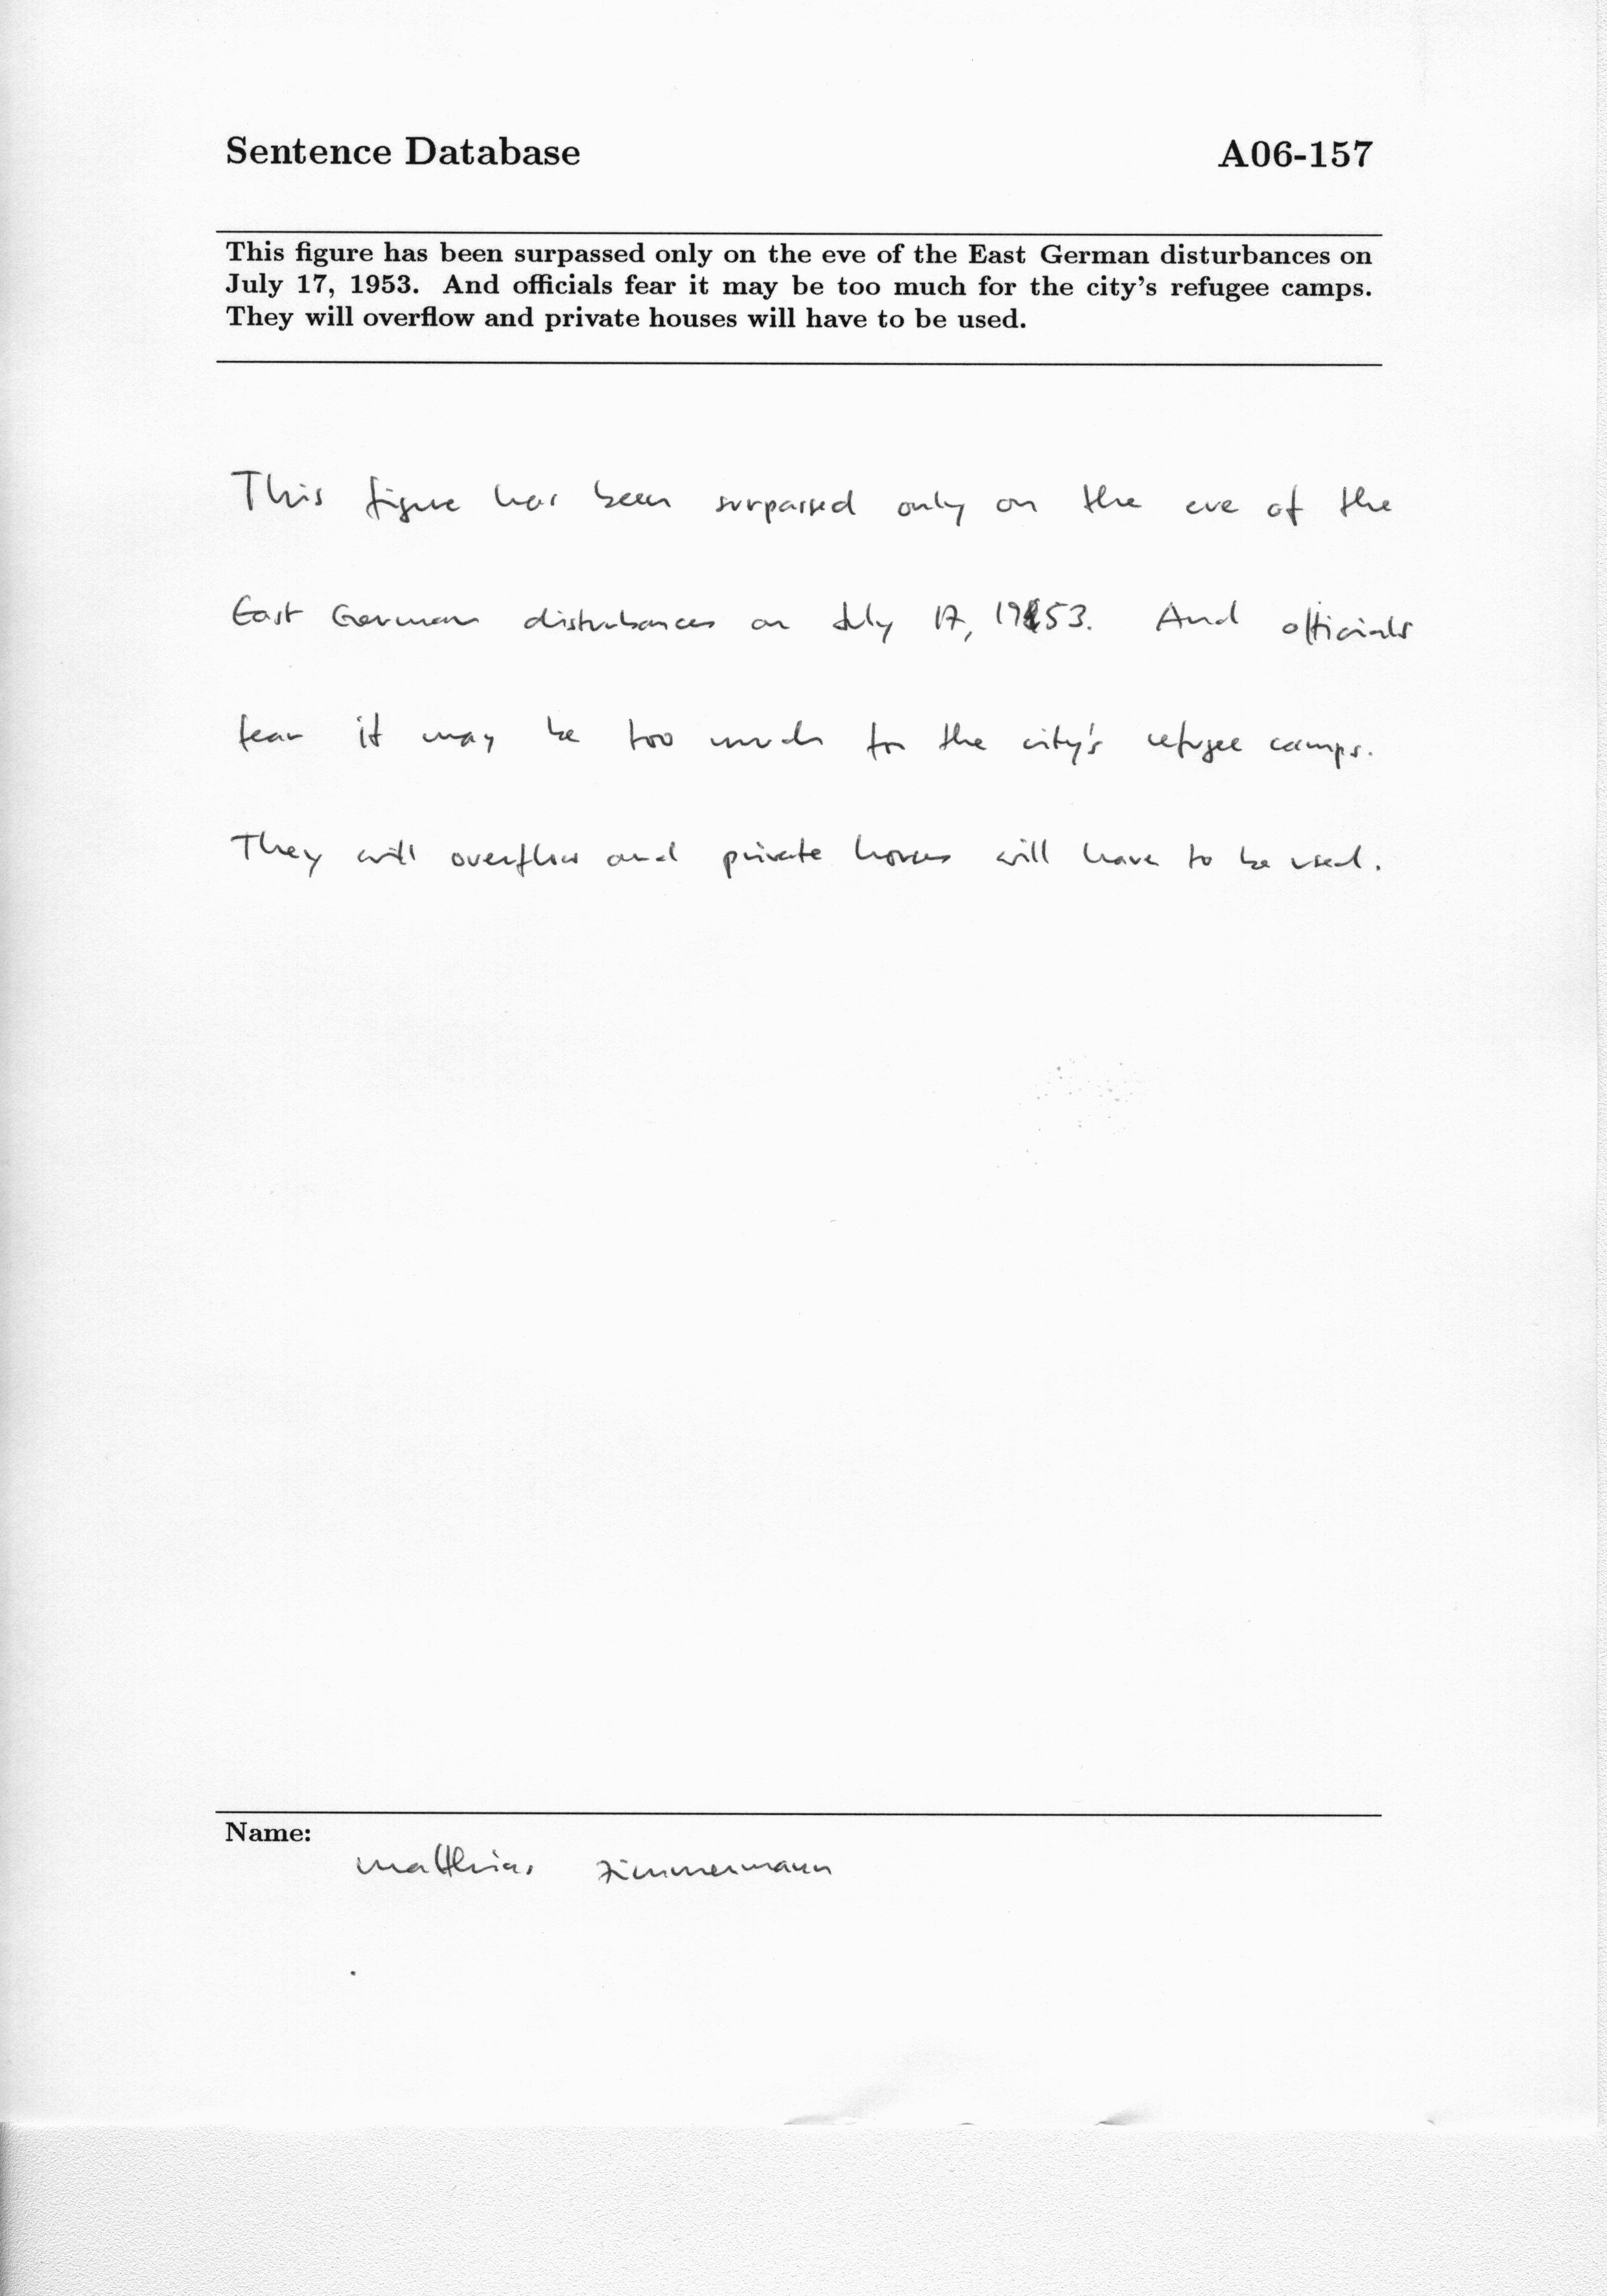 Sentence Database A06-157
This figure has been surpassed only on the eve of the East German disturbances on
July 17, 1953. And officials fear it may be too much for the city's refugee camps.
They will overflow and private houses will have to be used.
This figure has been surpassed only on the eve of the
East German disturbances on July 17, 1953. And officials
fear it may be too much for the city's refugee camps.
They will overflow and private houses will have to be used.
Name:
Matthias Zimmermann